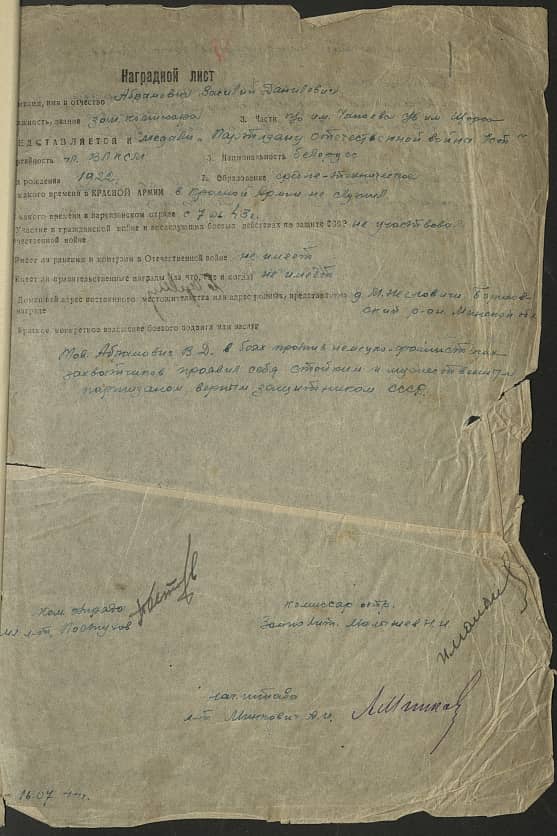 Наградной лист
имя и отчество Абрамович Василий Данилович
звание зам. комвзвода 3. Части п/о им. Чапаева им. Щорса
ПРЕДСТАВЛЯЕТСЯ К медали „Партизану Отечественной война II ст"
чл. ВЛКСМ 5. Национальность белорус
рождения 1922 7. Образование средне-техническое
какого времени в КРАСНОЙ АРМИИ в Красной Армии не служил
какого времени в партизанском отряде с 7.06.43 г.
Участие в гражданской войне и последующих боевых действиях по защите СССР не участвовал
отечественной войне
Имеет ли ранения и контузии в Отечественной войне не имеет
Имеет ли правительственные награды (за что, где и когда) не имеет
Домашний адрес постоянного местожительства или адрес родных, представляемого к д. Бегом
награде ский р-он Минской об
Краткое, конкретное изложение боевого подвига или заслуг
Тов. Абрамович В.Д. в боях против немецко-фашистских
захватчиков проявил себя стойким и мужественным
партизаном верным защитником СССР.
Ком. отряда
л-т. Пастухов
Комиссар отр.
Малашев Н И
нач. штаба
л-т. Минкович А.И.
16.07 44 г.